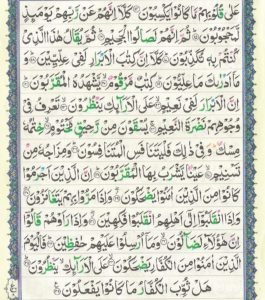 عَلٰى قُلُوْبِهِمْ مَّا كَانُوْا يَكْسِبُوْنَ كَلَّاۤ اِنَّهُمْ عَنْ رَّبِّهِمْ يَوْمَىِٕذٍ
لَّمَحْجُوْبُوْنَ ثُمَّ اِنَّهُمْ لَصَالُوا الْجَحِيْمِ ثُمَّ يُقَالُ هٰذَا الَّذِيْ
كُنْتُمْ بِهٖ تُكَذِّبُوْنَ كَلَّاۤ اِنَّ كِتٰبَ الْاَبْرَارِ لَفِيْ عِلِّيِّيْنَ وَ
مَاۤ اَدْرٰىكَ مَا عِلِّيُّوْنَ كِتٰبٌ مَّرْقُوْمٌ يَّشْهَدُهُ الْمُقَرَّبُوْنَ
اِنَّ الْاَبْرَارَ لَفِيْ نَعِيْمٍ عَلَى الْاَرَآىِٕكِ يَنْظُرُوْنَ تَعْرِفُ فِيْ
وُجُوْهِهِمْ نَضْرَةَ النَّعِيْمِ يُسْقَوْنَ مِنْ رَّحِيْقٍ مَّخْتُوْمٍ خِتٰمُهٗ
مِسْكٌ وَ فِيْ ذٰلِكَ فَلْيَتَنَافَسِ الْمُتَنَافِسُوْنَ وَمِزَاجُهٗ مِنْ
تَسْنِيْمٍ عَيْنًا يَّشْرَبُ بِهَا الْمُقَرَّبُوْنَ اِنَّ الَّذِيْنَ اَجْرَمُوْا
كَانُوْا مِنَ الَّذِيْنَ اٰمَنُوْا يَضْحَكُوْنَ وَاِذَا مَرُّوْا بِهِمْ يَتَغَامَزُوْنَ
وَاِذَا انْقَلَبُوْۤا اِلٰۤى اَهْلِهِمُ انْقَلَبُوْا فَكِهِيْنَ وَاِذَا رَاَوْهُمْ قَالُوْۤا
اِنَّ هٰۤؤُلَآءِ لَضَآلُّوْنَ وَمَاۤ اُرْسِلُوْا عَلَيْهِمْ حٰفِظِيْنَ فَالْيَوْمَ
الَّذِيْنَ اٰمَنُوْا مِنَ الْكُفَّارِ يَضْحَكُوْنَ عَلَى الْاَرَآىِٕكِ يَنْظُرُوْنَ
هَلْ ثُوِّبَ الْكُفَّارُ مَا كَانُوْا يَفْعَلُوْنَ